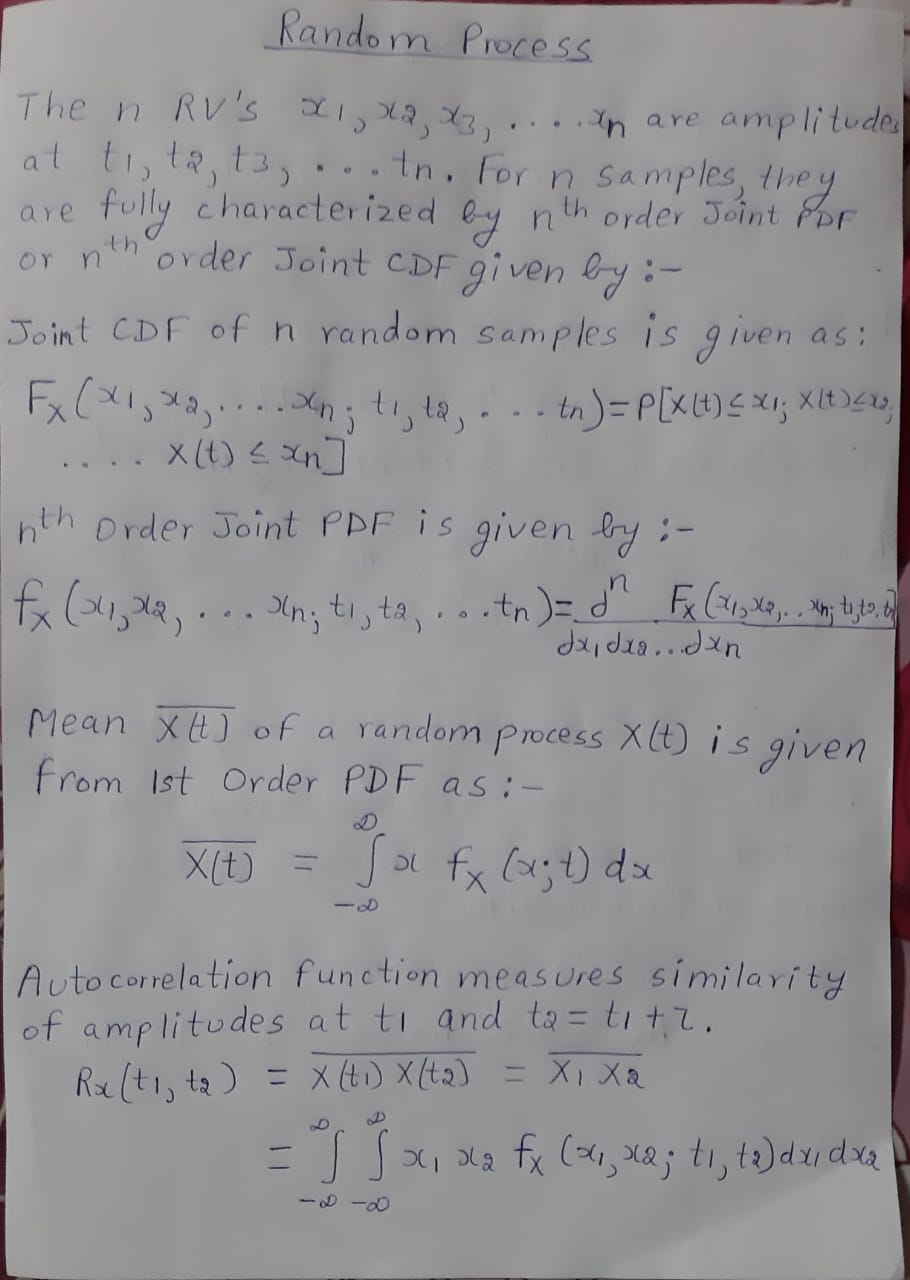 Random Process
The n RV's x1, x2, x3, ....xn are amplitudes
at t1, t2, t3, ...tn. For n samples, they
are fully characterized by nth order Joint PDF
or nth order Joint CDF given by :-
Joint CDF of n random samples is given as:
FX(x1, x2, ....xn; t1, t2, . ... tn) = P[X(t) ≤ x1; X(t) ≤ x2,
.... X(t) ≤ xn]
nth Order Joint PDF is given by :-
fX(x1, x2, ... xn; t1, t2, ...tn) = d^n FX(x1, x2, .. xn; t1, t2. tn)
dx1 dx2...dxn
Mean X̅(̅t̅)̅ of a random process X(t) is given
from 1st Order PDF as :-
∞
X̅(̅t̅)̅ = ∫ x fX (x; t) dx
-∞
Autocorrelation function measures similarity
of amplitudes at t1 and t2 = t1 + τ.
Rx(t1, t2) = X̅(̅t̅1̅)̅ ̅X̅(̅t̅2̅)̅ = X̅1̅ ̅X̅2̅
∞ ∞
= ∫ ∫ x1 x2 fX (x1, x2; t1, t2) dx1 dx2
-∞ -∞